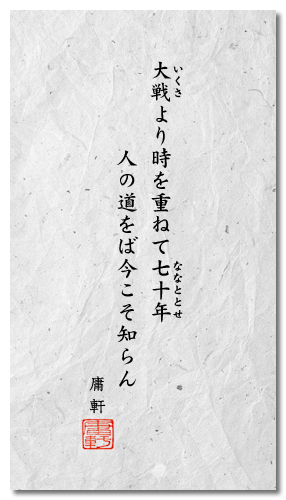 大戦より時を重ねて七十年
いくさ
ななととせ
人の道をば今こそ知らん
庸軒
庸軒